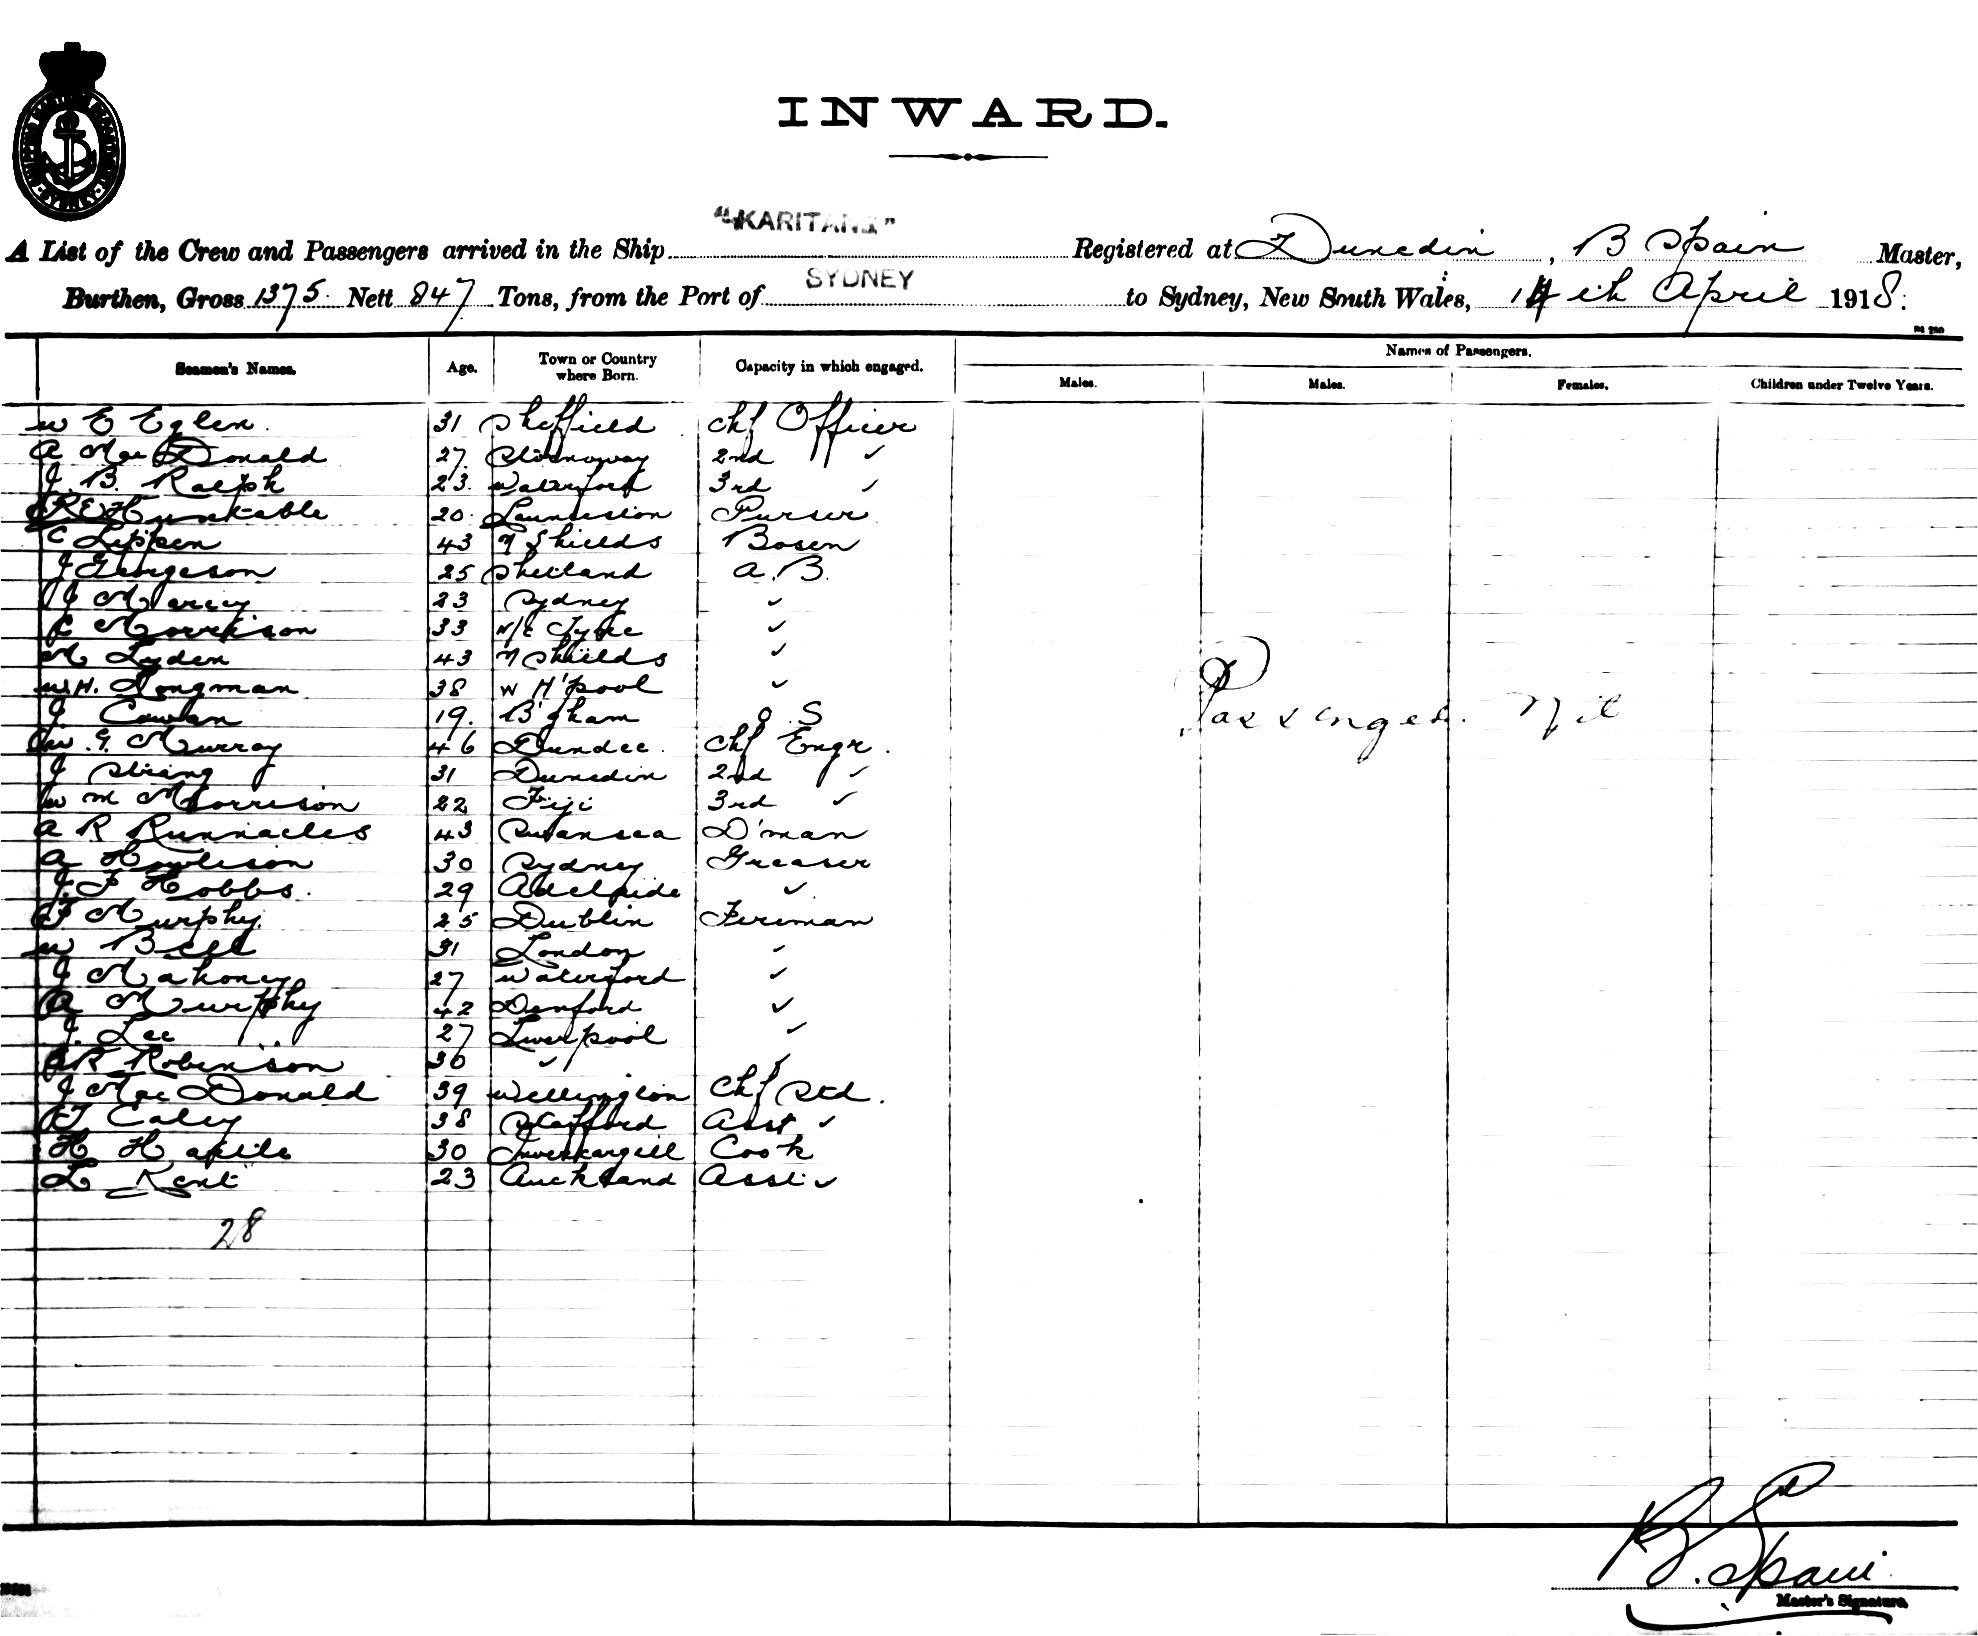 INWARD.
"KARITANE"
A List of the Crew and Passengers arrived in the Ship Registered at Dunedin, B Spain Master,
SYDNEY
Burthen, Gross 1375 Nett 847 Tons, from the Port of to Sydney, New South Wales, 14th April 1918.
Seamen's Names. Age. Town or Country where Born. Capacity in which engaged. Names of Passengers.
Males. Males. Females. Children under Twelve Years.
W E Eglen. 31 Sheffield Chf Officer
A MacDonald 27 Stornoway 2nd ✓
J. B. Ralph 23 Waterford 3rd ✓
R E Hunkable 20 Launceston Purser
C Lippen 43 N Shields Bosen
J Georgeson 25 Shetland A.B.
J Marcy 23 Sydney ✓
C Morrison 33 N/C Tyne ✓
M Lyden 43 N Shields ✓
W.H. Longman 38 W H'pool ✓
J Cowan 19. B'gham O.S
W. G. Murray 46 Dundee. Chf Engr.
J Strang 31 Dunedin 2nd ✓
W M Morrison 22 Fiji 3rd ✓
A R Runnacles 43 Swansea D'man
A Howieson 30 Sydney Greaser
J F Hobbs. 29 Adelaide ✓
F Murphy. 25 Dublin Fireman
W Bell 31 London ✓
J Mahoney 27 Waterford ✓
A Murphy 42 Danford ✓
J. Lee 27 Liverpool ✓
R Robinson 30 ✓ ✓
J MacDonald 39 Wellington Chf Std.
T Caley 38 Stafford Asst ✓
H H 30 Invercargill Cook
L Kent 23 Auckland Asst ✓
28
Passengers. Nil
B. Spain
Master's Signature.